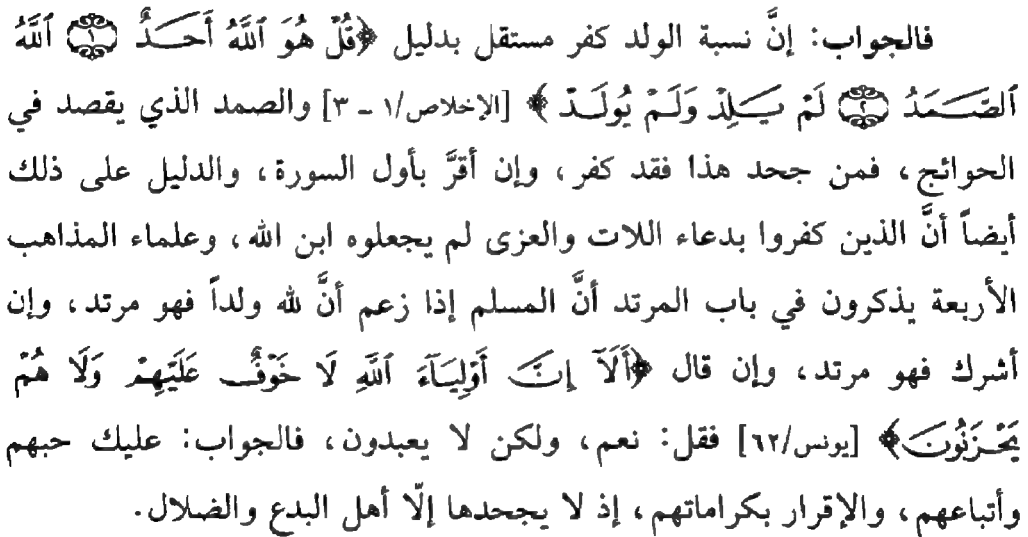 فالجواب: إنَّ نسبة الولد كفر مستقل بدليل ﴿قُلْ هُوَ ٱللَّهُ أَحَـدٌ ۝١ ٱللَّهُ
ٱلصَّـمَدُ ۝٢ لَمْ يَـلِدْ وَلَـمْ يُولَـدْ﴾ [الإخلاص/١ - ٣] والصمد الذي يقصد في
الحوائج، فمن جحد هذا فقد كفر، وإن أقرَّ بأول السورة، والدليل على ذلك
أيضاً أنَّ الذين كفروا بدعاء اللات والعزى لم يجعلوه ابن الله، وعلماء المذاهب
الأربعة يذكرون في باب المرتد أنَّ المسلم إذا زعم أنَّ لله ولداً فهو مرتد، وإن
أشرك فهو مرتد، وإن قال ﴿أَلَآ إِنَّ أَوْلِيَـآءَ ٱللَّهِ لَا خَوْفٌ عَلَيْهِمْ وَلَا هُمْ
يَحْـزَنُونَ﴾ [يونس/٦٢] فقل: نعم، ولكن لا يعبدون، فالجواب: عليك حبهم
وأتباعهم، والإقرار بكراماتهم، إذ لا يجحدها إلّا أهل البدع والضلال.